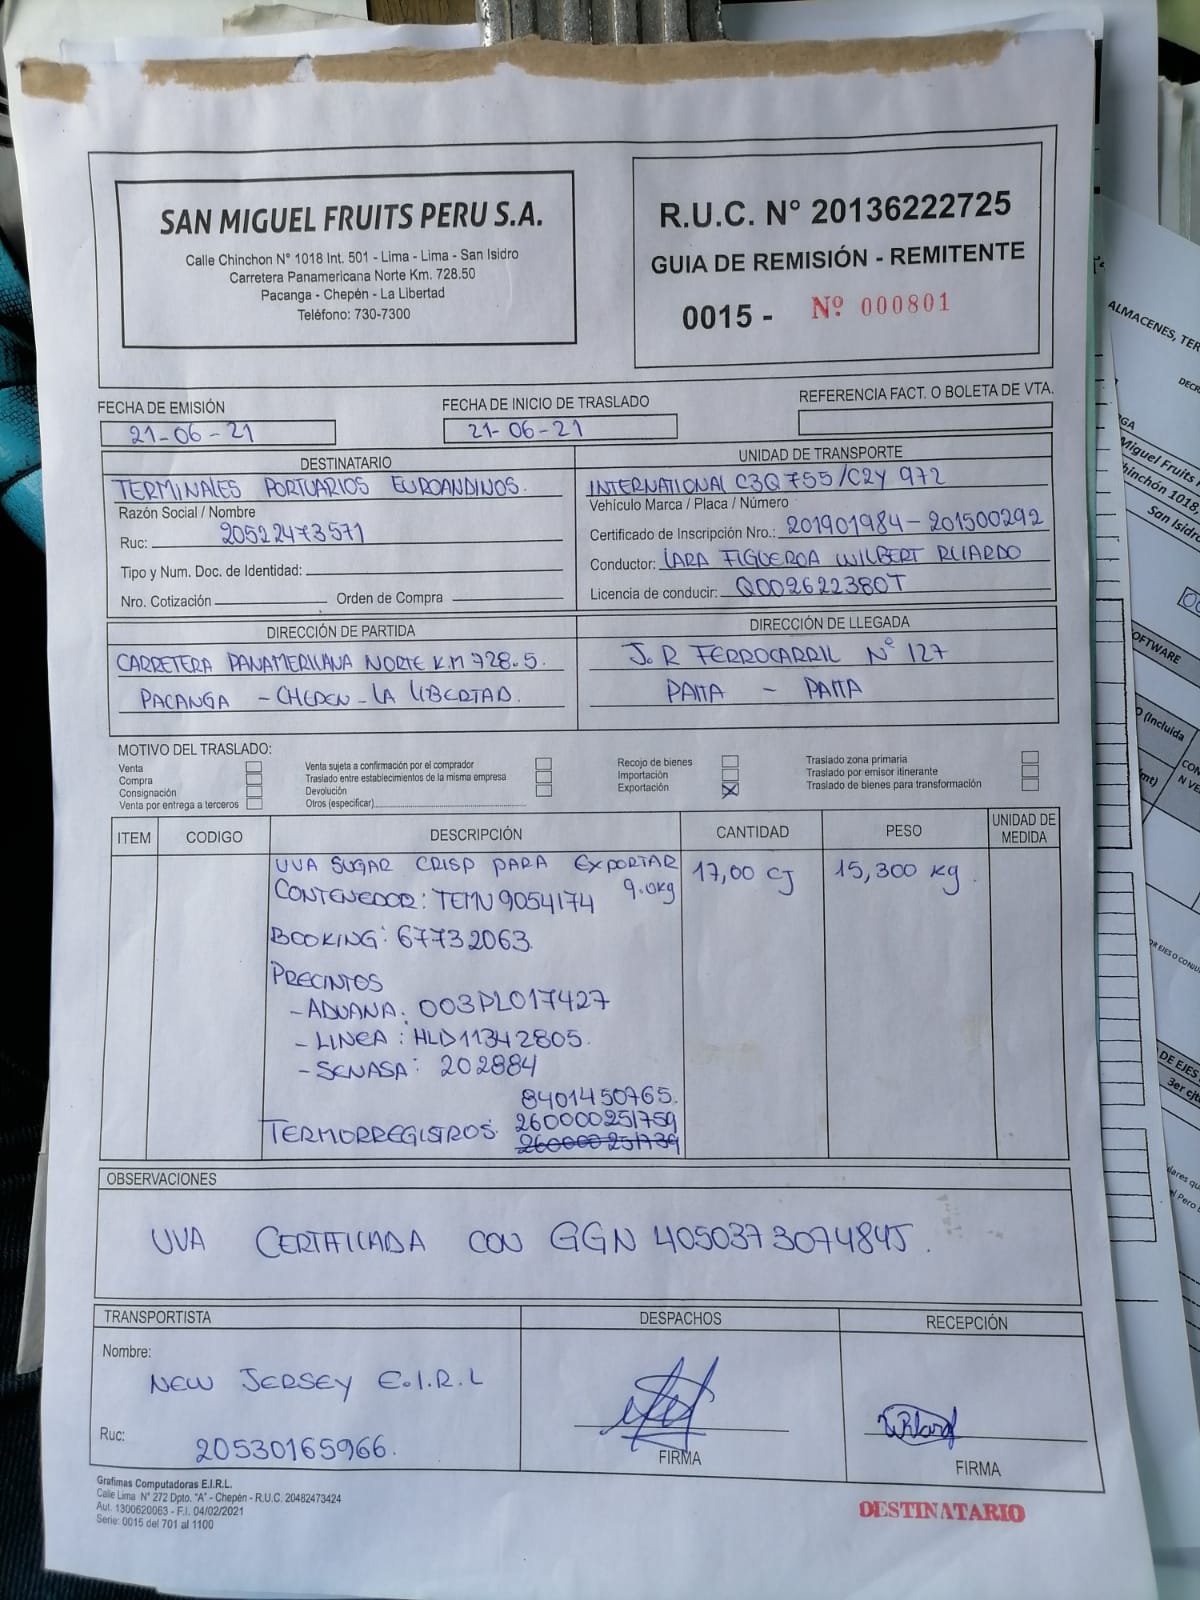 SAN MIGUEL FRUITS PERU S.A.
Calle Chinchon N° 1018 Int. 501 - Lima - Lima - San Isidro
Carretera Panamericana Norte Km. 728.50
Pacanga - Chepén - La Libertad
Teléfono: 730-7300
R.U.C. N° 20136222725
GUIA DE REMISIÓN - REMITENTE
0015 - Nº 000801
FECHA DE EMISIÓN
21-06-21
FECHA DE INICIO DE TRASLADO
21-06-21
REFERENCIA FACT. O BOLETA DE VTA.
DESTINATARIO
TERMINALES PORTUARIOS EUROANDINOS.
Razón Social / Nombre
Ruc: 20522473571
Tipo y Num. Doc. de Identidad:
Nro. Cotización Orden de Compra
UNIDAD DE TRANSPORTE
INTERNATIONAL C3Q755/C2Y 972
Vehículo Marca / Placa / Número
Certificado de Inscripción Nro.: 201901984-201500292
Conductor: LARA FIGUEROA WILBERT RICARDO
Licencia de conducir: Q002622380T
DIRECCIÓN DE PARTIDA
CARRETERA PANAMERICANA NORTE KM 728.5.
PACANGA - CHEPEN - LA LIBERTAD.
DIRECCIÓN DE LLEGADA
J.R FERROCARRIL N° 127
PAITA - PAITA
MOTIVO DEL TRASLADO:
Venta
Compra
Consignación
Venta por entrega a terceros
Venta sujeta a confirmación por el comprador
Traslado entre establecimientos de la misma empresa
Devolución
Otros (especificar)
Recojo de bienes
Importación
Exportación X
Traslado zona primaria
Traslado por emisor itinerante
Traslado de bienes para transformación
ITEM CODIGO DESCRIPCIÓN CANTIDAD PESO UNIDAD DE MEDIDA
UVA SUGAR CRISP PARA EXPORTAR 17,00 CJ 15,300 kg.
9.0kg
CONTENEDOR: TEMU9054174
BOOKING: 67732063.
PRECINTOS
- ADUANA: 003PL017427
- LINEA: HLD11342805.
- SENASA: 202884
8401450765.
TERMORREGISTROS: 260000251759
260000251739
OBSERVACIONES
UVA CERTIFICADA CON GGN 4050373074845.
TRANSPORTISTA
Nombre:
NEW JERSEY E.I.R.L
Ruc: 20530165966.
DESPACHOS
FIRMA
RECEPCIÓN
FIRMA
Grafimas Computadoras E.I.R.L.
Calle Lima N° 272 Dpto. "A" - Chepén - R.U.C. 20482473424
Aut. 1300620063 - F.I. 04/02/2021
Serie: 0015 del 701 al 1100
DESTINATARIO
ALMACENES, TER
Miguel Fruits
hinchón 1018,
San Isidro
OFTWARE
(Incluida
DE EJES
3er eje